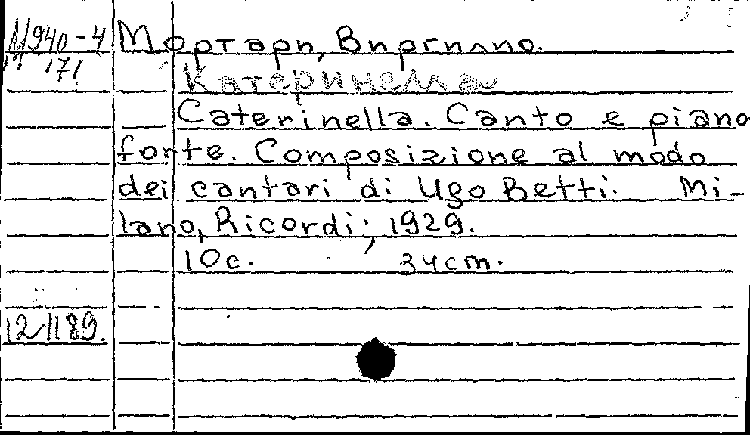 М940-4 Мортари, Виргилио.
171
Катеринелла
Caterinella. Canto e piano
forte. Composizione al modo
dei cantari di Ugo Betti. Mi-
lano, Ricordi, 1929.
10c. 34cm.
121189.